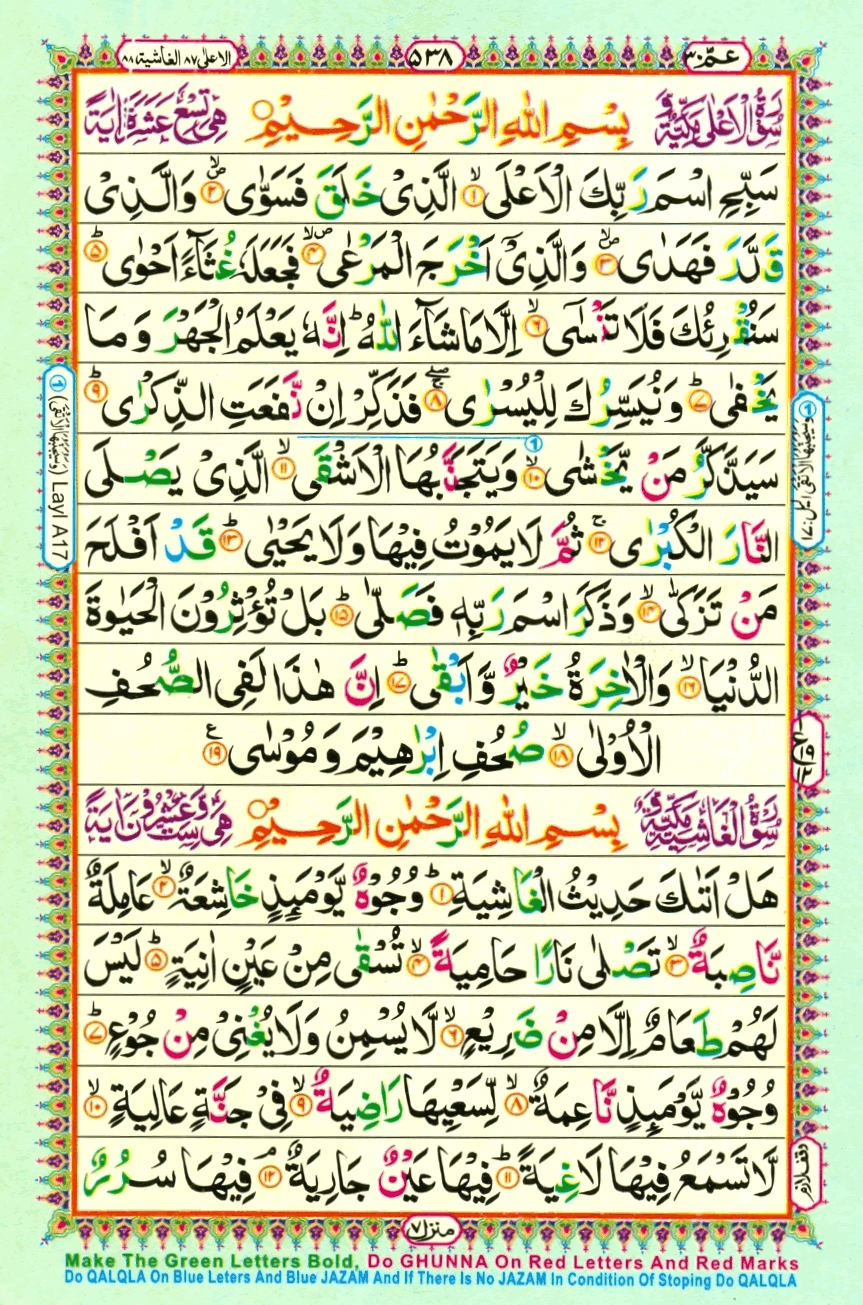 عمّ ۳۰
۵۳۸
الاعلیٰ ۸۷ الغاشیة ۸۸
سُوْرَةُ الْاَعْلٰی مَکِّیَّةٌ
بِسْمِ اللهِ الرَّحْمٰنِ الرَّحِیْمِ
هِیَ تِسْعَ عَشَرَةَ اٰیَةً
سَبِّحِ اسْمَ رَبِّكَ الْاَعْلَی ۙ﴿۱﴾ الَّذِیْ خَلَقَ فَسَوّٰی ۪ۙ﴿۲﴾ وَالَّذِیْ
قَدَّرَ فَهَدٰی ۪ۙ﴿۳﴾ وَالَّذِیْۤ اَخْرَجَ الْمَرْعٰی ۪ۙ﴿۴﴾ فَجَعَلَهٗ غُثَآءً اَحْوٰی ؕ﴿۵﴾
سَنُقْرِئُكَ فَلَا تَنْسٰۤی ۙ﴿۶﴾ اِلَّا مَا شَآءَ اللّٰهُ ؕ اِنَّهٗ یَعْلَمُ الْجَهْرَ وَ مَا
یَخْفٰی ؕ﴿۷﴾ وَ نُیَسِّرُكَ لِلْیُسْرٰی ۚۖ﴿۸﴾ فَذَكِّرْ اِنْ نَّفَعَتِ الذِّكْرٰی ؕ﴿۹﴾
سَیَذَّكَّرُ مَنْ یَّخْشٰی ۙ﴿۱۰﴾ وَیَتَجَنَّبُهَا الْاَشْقَی ۙ﴿۱۱﴾ الَّذِیْ یَصْلَی
النَّارَ الْكُبْرٰی ۚ﴿۱۲﴾ ثُمَّ لَا یَمُوْتُ فِیْهَا وَلَا یَحْیٰی ؕ﴿۱۳﴾ قَدْ اَفْلَحَ
مَنْ تَزَكّٰی ۙ﴿۱۴﴾ وَذَكَرَ اسْمَ رَبِّهٖ فَصَلّٰی ؕ﴿۱۵﴾ بَلْ تُؤْثِرُوْنَ الْحَیٰوةَ
الدُّنْیَا ۙ﴿۱۶﴾ وَالْاٰخِرَةُ خَیْرٌ وَّ اَبْقٰی ؕ﴿۱۷﴾ اِنَّ هٰذَا لَفِی الصُّحُفِ
الْاُوْلٰی ۙ﴿۱۸﴾ صُحُفِ اِبْرٰهِیْمَ وَ مُوْسٰی ﴿۱۹﴾
سُوْرَةُ الْغَاشِیَةِ مَکِّیَّةٌ
بِسْمِ اللهِ الرَّحْمٰنِ الرَّحِیْمِ
هِیَ سِتٌّ وَّعِشْرُوْنَ اٰیَةً
هَلْ اَتٰىكَ حَدِیْثُ الْغَاشِیَةِ ؕ﴿۱﴾ وُجُوْهٌ یَّوْمَىِٕذٍ خَاشِعَةٌ ۙ﴿۲﴾ عَامِلَةٌ
نَّاصِبَةٌ ۙ﴿۳﴾ تَصْلٰی نَارًا حَامِیَةً ۙ﴿۴﴾ تُسْقٰی مِنْ عَیْنٍ اٰنِیَةٍ ؕ﴿۵﴾ لَیْسَ
لَهُمْ طَعَامٌ اِلَّا مِنْ ضَرِیْعٍ ۙ﴿۶﴾ لَّا یُسْمِنُ وَلَا یُغْنِیْ مِنْ جُوْعٍ ؕ﴿۷﴾
وُجُوْهٌ یَّوْمَىِٕذٍ نَّاعِمَةٌ ۙ﴿۸﴾ لِّسَعْیِهَا رَاضِیَةٌ ۙ﴿۹﴾ فِیْ جَنَّةٍ عَالِیَةٍ ۙ﴿۱۰﴾
لَّا تَسْمَعُ فِیْهَا لَاغِیَةً ؕ﴿۱۱﴾ فِیْهَا عَیْنٌ جَارِیَةٌ ۘ﴿۱۲﴾ فِیْهَا سُرُرٌ
۱ وَسَیُجَنَّبُهَا الْاَتْقَی الیل:۱۷
۱ (وَسَیُجَنَّبُهَا الْاَتْقَی) Layl A17
ع ۱۹ ۱۲
وقف لازم
منزل ۷
Make The Green Letters Bold, Do GHUNNA On Red Letters And Red Marks
Do QALQLA On Blue Leters And Blue JAZAM And If There Is No JAZAM In Condition Of Stoping Do QALQLA